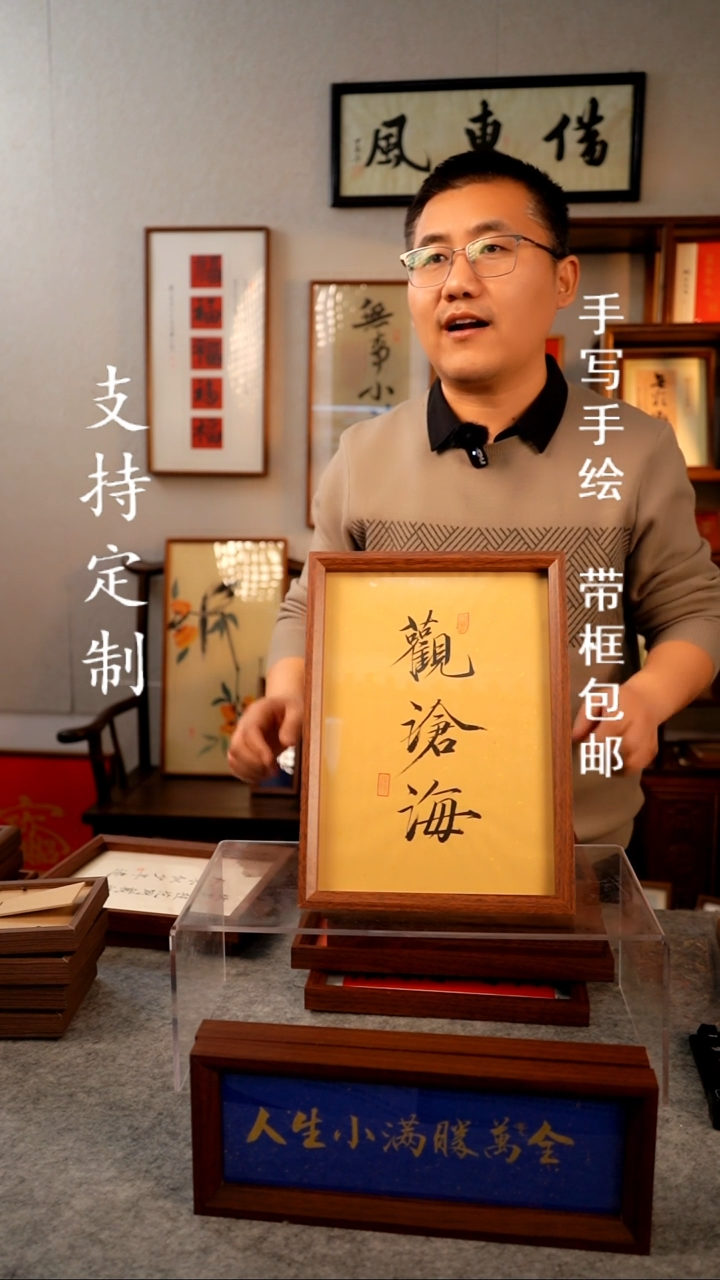 借東風
福
福
福
福
福
無事小
支持定制
手写手绘 带框包邮
觀滄海
人生小满勝萬全